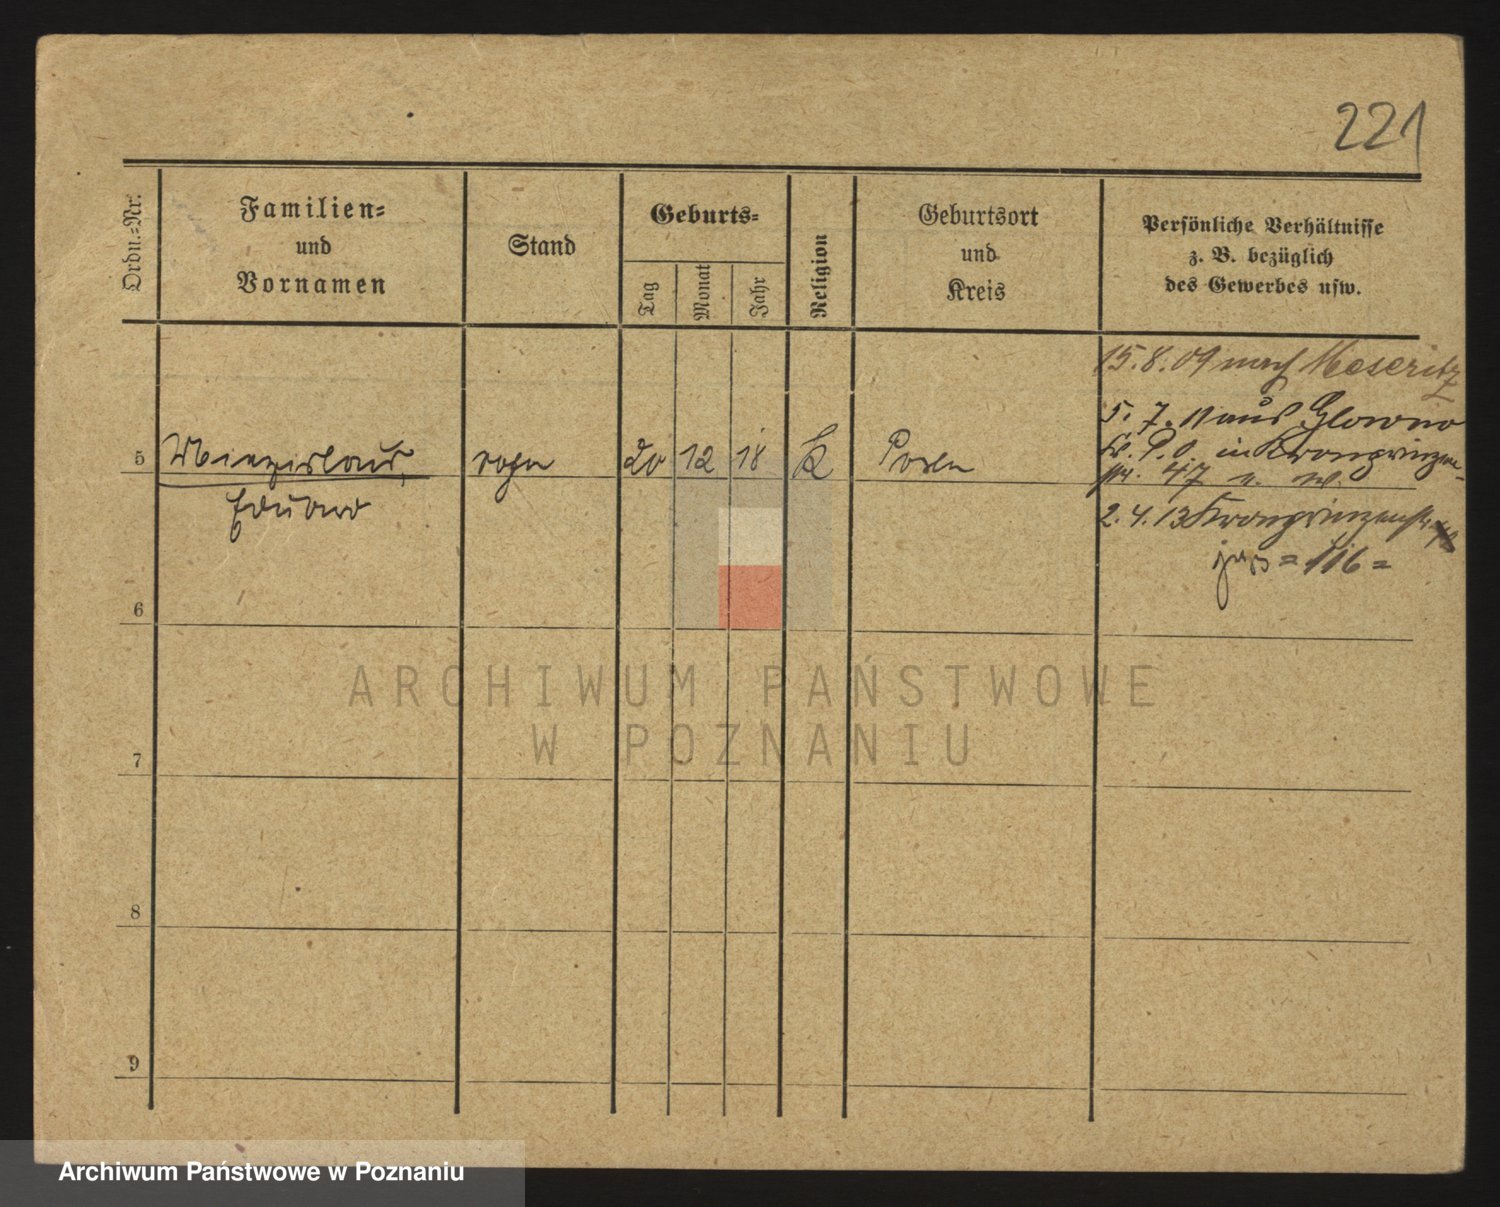 221
Ordn.=Nr.
Familien=
und
Vornamen
Stand
Geburts=
Tag
Monat
Jahr
Religion
Geburtsort
und
Kreis
Persönliche Verhältnisse
z. B. bezüglich
des Gewerbes usw.
15. 8. 09 nach Meseritz
5. 7. 11 aus Glowno
Kr. P. O. in Kronprinzen-
str. 47 u. w.
5 20 12 18 K Posen
Eduard
2. 4. 13 Kronprinzenstr.
= 116 =
6
7
8
9
ARCHIWUM PAŃSTWOWE
W POZNANIU
Archiwum Państwowe w Poznaniu